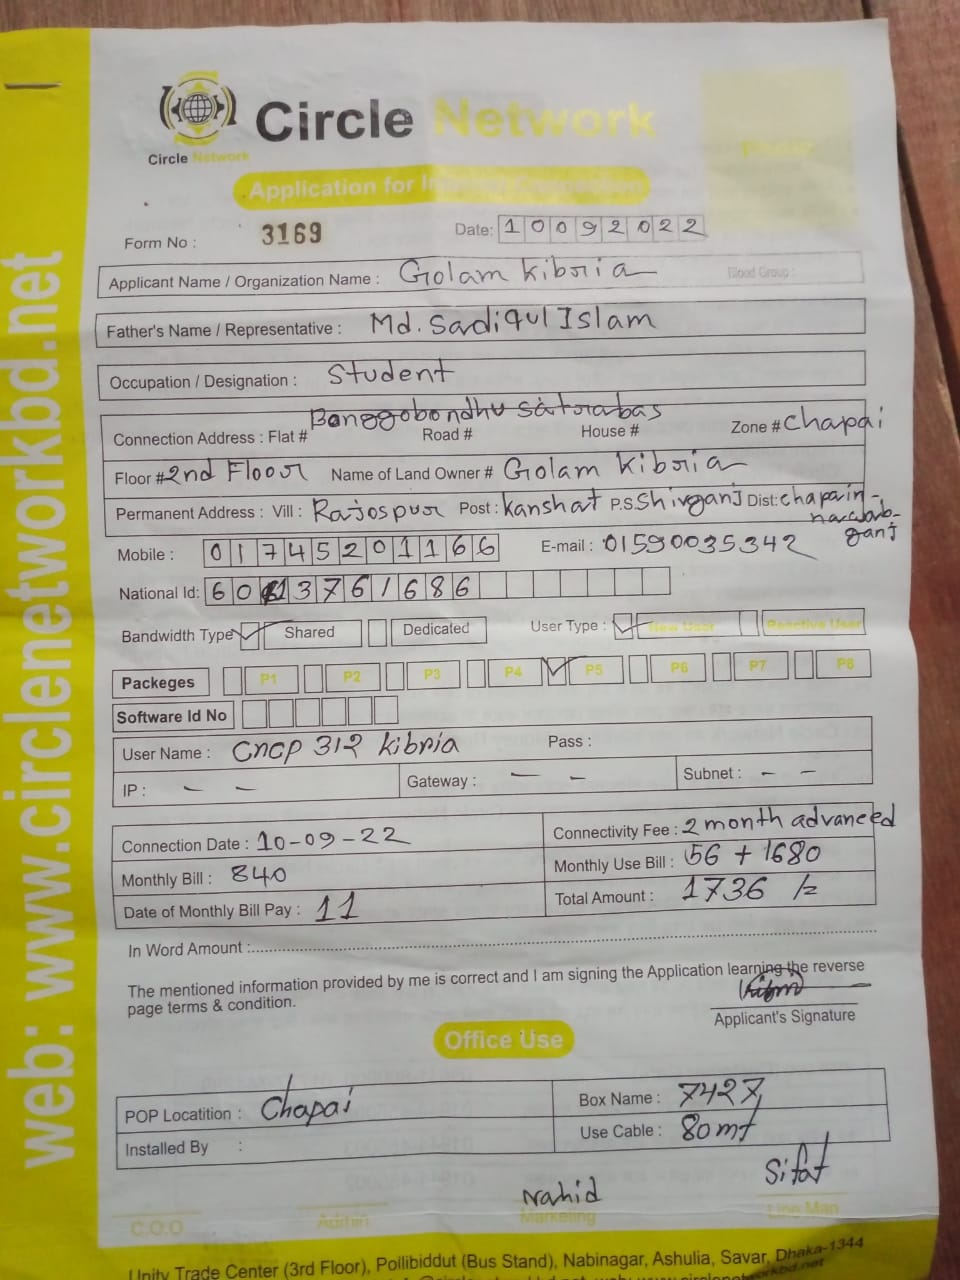 Circle Network
Circle Network
Application for Internet Connection
Photo
Form No : 3169
Date: 10092022
Applicant Name / Organization Name : Golam Kibria
Blood Group :
Father's Name / Representative : Md. Sadiqul Islam
Occupation / Designation : Student
Connection Address : Flat # Bonggobondhu satrabas Road # House # Zone # chapai
Floor # 2nd Floor Name of Land Owner # Golam Kibria
Permanent Address : Vill : Rajospur Post : kanshat P.S Shivganj Dist: chapain-
nawab-
ganj
Mobile : 01745201166 E-mail : 01590035342
National Id: 6013761686
Bandwidth Type Shared Dedicated User Type : New User Reactive User
Packeges P1 P2 P3 P4 P5 P6 P7 P8
Software Id No
User Name : cncp 312 kibria Pass :
IP : – – Gateway : – – Subnet : – –
Connection Date : 10-09-22 Connectivity Fee : 2 month advanced
Monthly Bill : 840 Monthly Use Bill : 56 + 1680
Date of Monthly Bill Pay : 11 Total Amount : 1736 /=
In Word Amount :
The mentioned information provided by me is correct and I am signing the Application learning the reverse
page terms & condition.
Applicant's Signature
Office Use
POP Locatition : Chapai Box Name : 7427
Installed By : Use Cable : 80mt
Nahid Sifat
C.O.O Admin Marketing Line Man
Unity Trade Center (3rd Floor), Pollibiddut (Bus Stand), Nabinagar, Ashulia, Savar, Dhaka-1344
web: www.circlenetworkbd.net